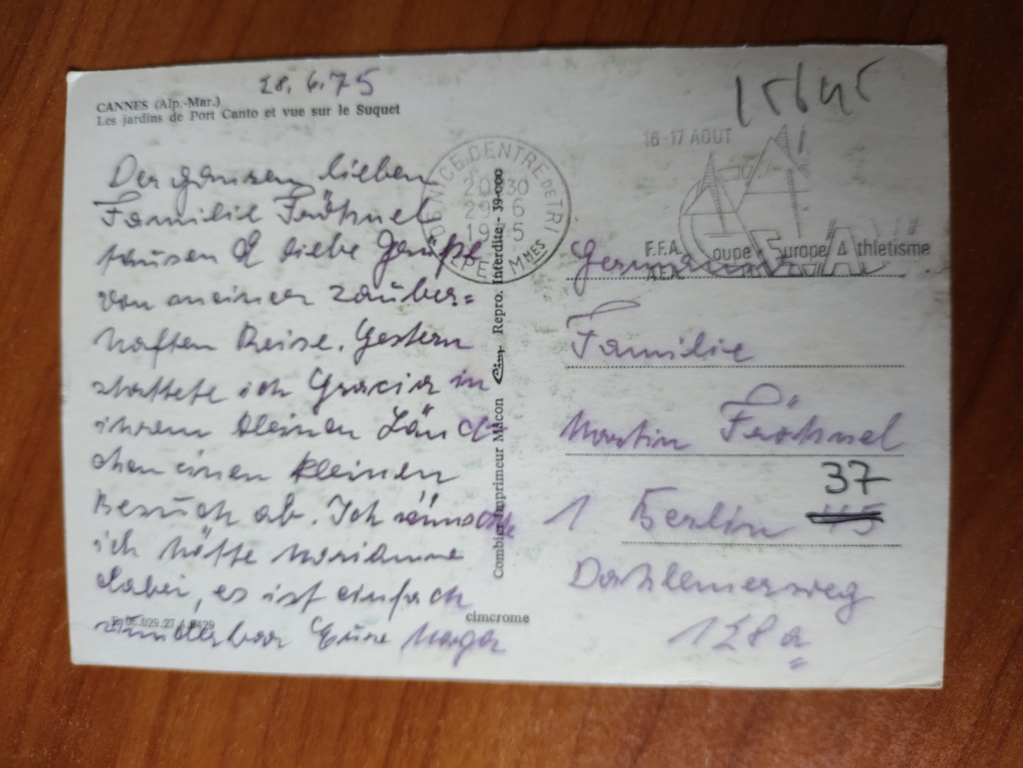 28.6.75
CANNES (Alp.-Mar.)
Les jardins de Port Canto et vue sur le Suquet
Der ganzen lieben
Familie Fröhnel
tausend liebe Grüße
von meiner zauber=
haften Reise. Gestern
stattete ich Gracia in
ihrem kleinen Länd
chen einen kleinen
Besuch ab. Ich wünschte
ich hätte Marianne
dabei, es ist einfach
wunderbar Eure
cimcrome
Combier Imprimeur Mâcon Cim Repro. Interdite - 39-000
06 NICE CENTRE DE TRI
20 30
29 6
1975
ALPES MMES
15645
16-17 AOUT
F.F.A. Coupe Europe Athletisme
Germania
Familie
Martin Fröhnel
1 Berlin 45 37
Dahlemerweg
128a